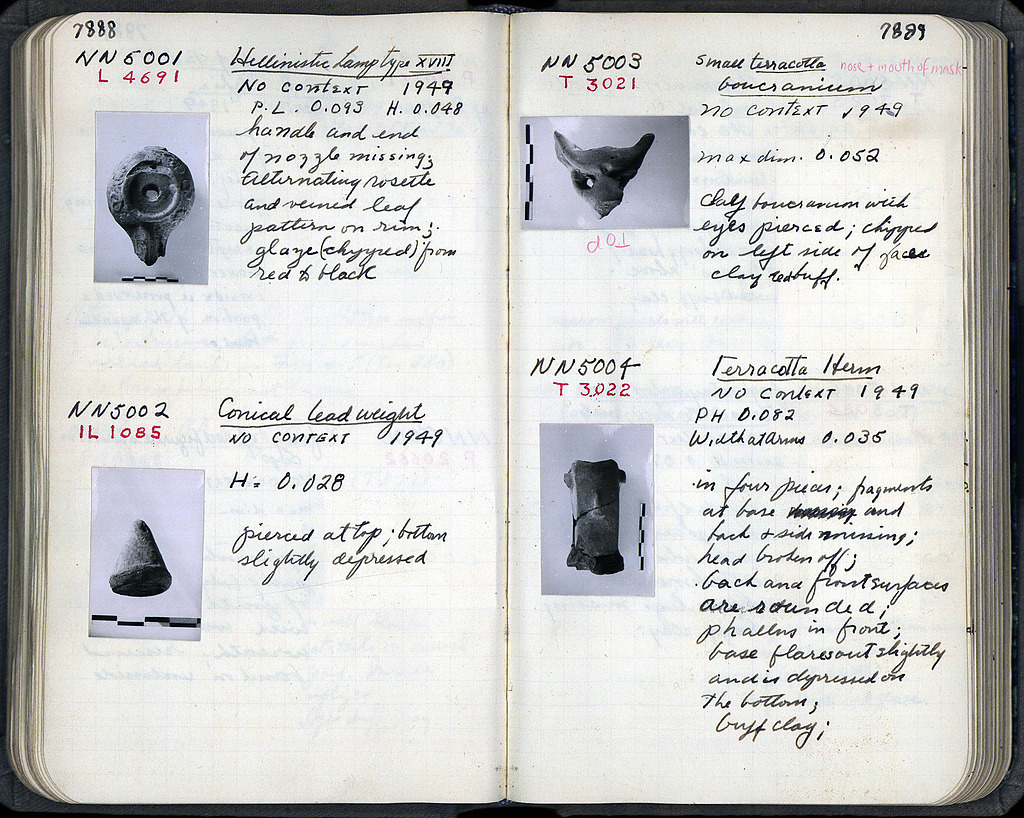 7888
NN 5001
L 4691
Hellinistic Lamp type XVIII
NO CONTEXT 1949
P.L. 0.093 H. 0.048
handle and end
of nozzle missing;
alternating rosette
and veined leaf
pattern on rim;
glaze (chypped) from
red to black
NN5002
IL 1085
Conical lead weight
NO CONTEXT 1949
H = 0.028
pierced at top; bottom
slightly depressed
7889
NN 5003
T 3021
Small terracotta nose + mouth of mask
boucranium
NO CONTEXT 1949
max dim. 0.052
TOP
Clay boucranium with
eyes pierced; chipped
on left side of face
clay red buff.
NN5004
T 3022
Terracotta Herm
NO CONTEXT 1949
PH 0.082
Width at arms 0.035
in four pieces; fragments
at base and
back + side missing;
head broken off;
back and front surfaces
are rounded;
phallus in front;
base flares out slightly
and is depressed on
the bottom;
buff clay;